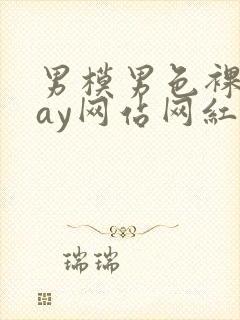 男模男色裸
ay网佔网紅
瑞瑞